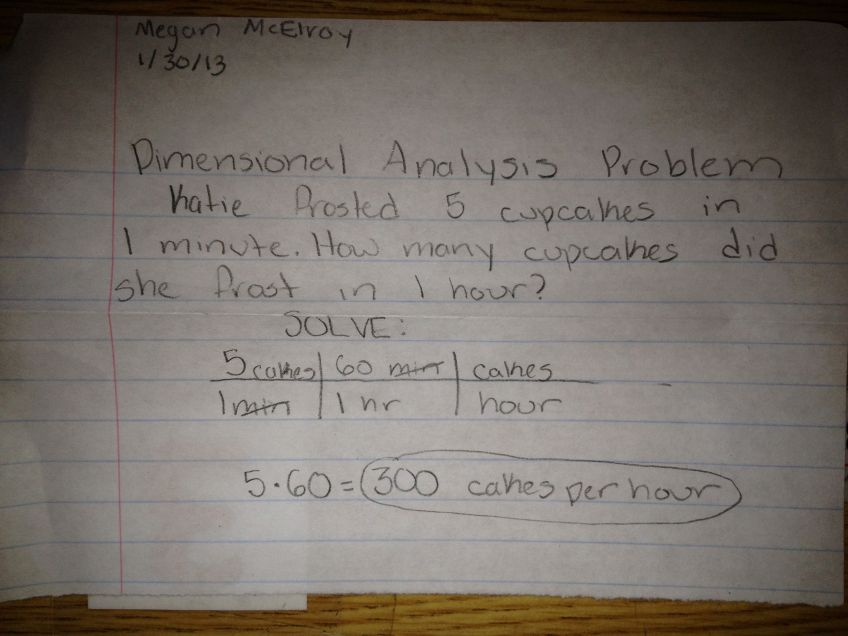 Megan McElroy
1/30/13
Dimensional Analysis Problem
Katie frosted 5 cupcakes in
1 minute. How many cupcakes did
she frost in 1 hour?
SOLVE:
5 cakes | 60 min | cakes
1 min | 1 hr | hour
5·60=300 cakes per hour